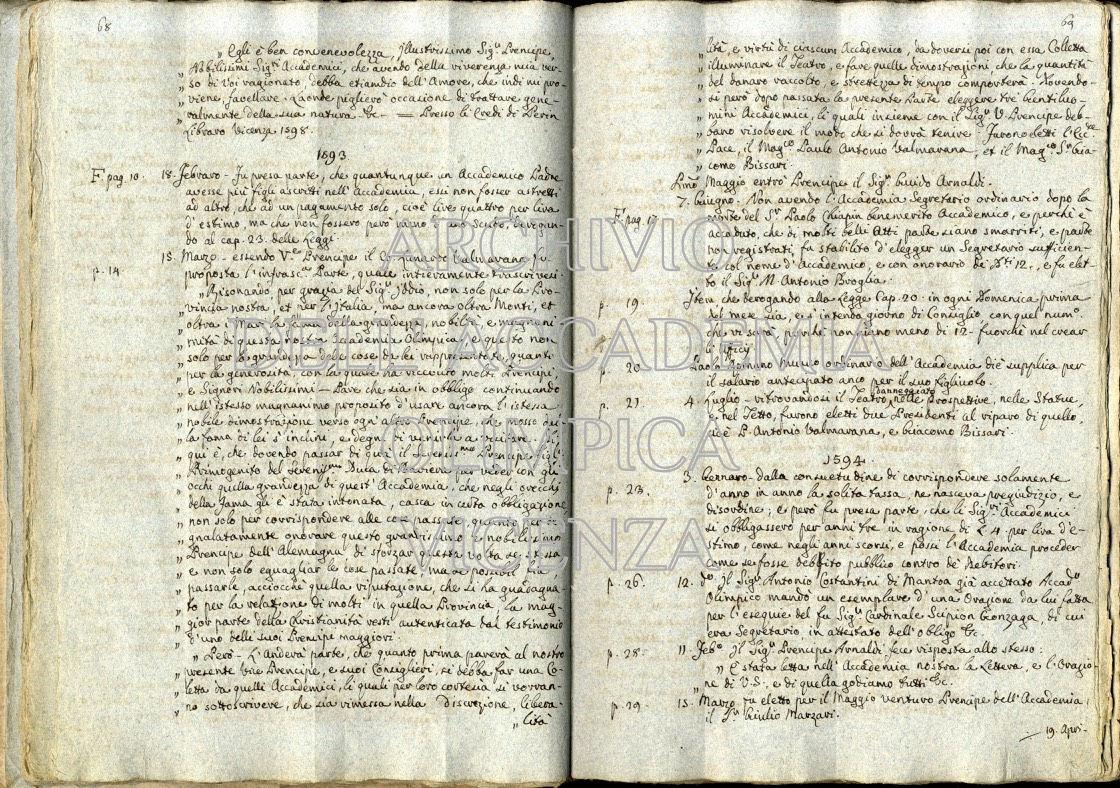 68
„ Egli è ben convenevolezza, Illustrissimo Sig.r Prencipe,
„ Nobilissimi Sig.ri Accademici, che avendo della riverenza mia ver-
„ so di voi ragionato, debba etiandio dell'Amore, che indi mi pro-
„ viene, favellare. Laonde piglierò occasione di trattare gene-
„ ralmente della sua natura &c. = Presso li Eredi di Perin
Libraro Vicenza 1598.
1593
F. pag. 10. 18. Febraro - Fu presa parte, che quantunque un Accademico Padre
avesse più figli ascritti nell'Accademia, essi non fosser astretti
ad altro, che ad un pagamento solo, cioè lire quattro per lira
d'estimo, ma che non fossero però meno d'uno scudo, derogan-
do al cap. 23. delle Leggi.
p. 14. 15. Marzo - essendo V.e Prencipe il Co: Lunardo Valmarana fu
proposta l'infrasc.a Parte, quale intieramente trascrivesi.
„ Risonando, per grazia del Sig.r Iddio, non solo per la Pro-
„ vincia nostra, et per l'Italia, ma ancora oltra Monti, et
„ oltra i Mari la fama della grandezza, nobiltà, e magnani-
„ mità di questa nostra Accademia Olimpica, e questo non
„ solo per la grandezza delle cose da lei rappresentate, quanto
„ per la generosità, con la quale ha raccolto molti Prencipi,
„ e Signori Nobilissimi - Pare che sia in obbligo continuando
„ nell'istesso magnanimo proposito d'usare ancora l'istessa
„ nobile dimostrazione verso ogn'altro Prencipe, che mosso da
„ la fama di lei s'inclini, e degni di venirla a visitare. Di
„ qui è, che dovendo passar di qua il Sereniss.mo Prencipe figl.o
„ Primogenito del Sereniss.mo Duca di Baviera per veder con gli
„ occhi quella grandezza di quest'Accademia, che negli orecchi
„ della fama gli è stata intonata, casca in certa obbligazione
„ non solo per corrispondere alle cose passate, quanto per se-
„ gnalatamente onorare questo grandissimo, e nobilissimo
„ Prencipe dell'Alemagna, di sforzar questa volta se stessa
„ e non solo eguagliar le cose passate, ma se possibil sia,
„ passarle, acciocché quella riputazione, che si ha guadagna-
„ to per la relazione di molti in quella Provincia, la mag-
„ gior parte della Christianità resti autenticata dal testimonio
„ d'uno delle suoi Prencipe maggiori.
„ Però - L'Anderà parte, che quanto prima parerà al nostro
„ presente Vice Prencipe, e suoi Consiglieri, si debba far una Co-
„ letta da quelli Accademici, li quali per loro cortesia si vorran-
„ no sottoscrivere, che sia rimessa nella Discrezione, libera-
„ lità
69
„ lità, e virtù di ciascun Accademico, da doversi poi con essa Colletta
„ illuminare il Teatro, e fare quelle dimostrazioni, che la quantità
„ del danaro raccolto, e strettezza di tempo comporterà. Dovendo-
„ si però dopo passata la presente Parte eleggere trè Gentiluo-
„ mini Accademici, li quali insieme con il Sig.r V. Prencipe deb-
„ bano risolvere il modo che si dovrà tenire. Furono eletti l'Ecc.te
„ Pace, il Mag.co Paulo Antonio Valmarana, et il Mag.co S.r Gia-
„ como Bissari.
Primo Maggio entrò Prencipe il Sig.r Guido Arnaldi.
F. pag. 17. 7. Giugno. Non avendo l'Accademia Segretario ordinario dopo la
morte del S.r Paolo Chiapin benemerito Accademico, e perchè è
accaduto, che di molti delli Atti parte siano smarriti, e parte
non registrati, fu stabilito d'elegger un Segretario sufficien-
te col nome d'Accademico, e con onorario de D.ti 12., e fu elet-
to il Sig.r M. Antonio Broglia.
p. 19. Item che derogando alla Legge Cap. 20. in ogni Domenica prima
del mese sia, e s'intenda giorno di Consiglio con quel num.o
che vi sarà, purchè non siano meno di 12 - fuorchè nel crear
li Officj.
p. 20. Paolo Bonino nuncio ordinario dell'Accademia diè supplica per
il salario antecipato anco per il suo Figliuolo.
p. 21 4. Luglio - ritrovandosi il Teatro danneggiato nelle Prospettive, nelle Statue,
e nel Tetto, furono eletti due Presidenti al riparo di quello,
cioè P. Antonio Valmarana, e Giacomo Bissari.
1594.
p. 23. 3. Gennaro - dalla consuetudine di corrispondere solamente
d'anno in anno la solita tassa, ne nasceva pregiudizio, e
disordine; e però fu presa parte, che li Sig.ri Accademici
si obbligassero per anni tre in ragione di £ 4. per lira d'e-
stimo, come negli anni scorsi, e possi l'Accademia proceder
come se fosse debito pubblico contro de' debitori.
p. 26. 12. d.o Il Sig.r Antonio Costantini di Mantoa già accettato Accad.o
Olimpico mandò un esemplare d'una Orazione da lui fatta
per l'esequie del fu Sig.r Cardinale Scipion Gonzaga, di cui
era Segretario, in attestato dell'obligo &c.
p. 28. 11. Feb.o Il Sig.r Prencipe Arnaldi fece risposta allo stesso:
„ È stata letta nell'Accademia nostra la Lettera, e l'Orazio-
„ ne di V.S., e di quella godiamo tutti &c.
p. 29. 15. Marzo fu eletto per il Maggio venturo Prencipe dell'Accademia,
il S.r Giulio Marzari.
19. Apri-
ARCHIVIO
DELLE ACCADEMIA
OLIMPICA
VICENZA